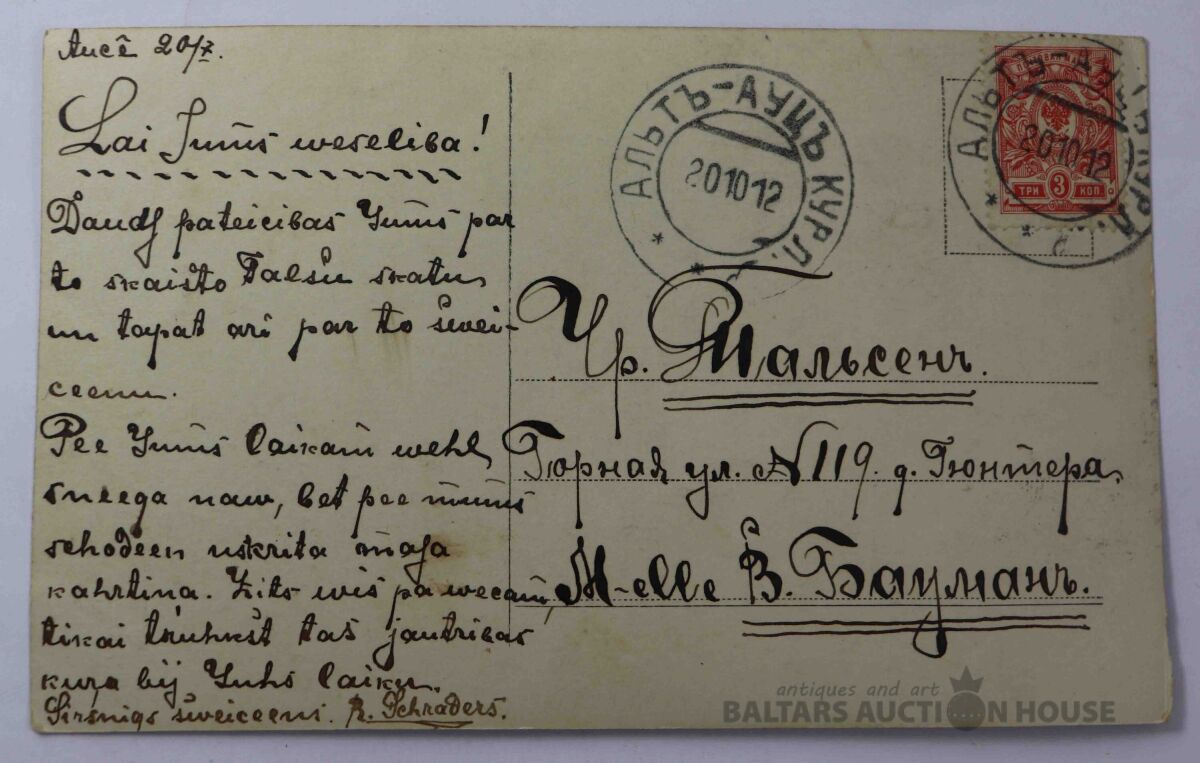 Aucê 20/X.
Lai Jums weseliba!
Daudſ pateicibas Jums par
to skaisto Talsu skatu,
un tapat arî par to swei-
ceenu.
Pee Jums laikam wehl
sneega naw, bet pee mums
schodeen uskrita masa
kahrtina. Zits wis pa wecam,
tikai truhkst tas jautribas
kura bij Juhs laiku.
Sirsnigs sweiceens. R. Schraders.
АЛЬТЪ-АУЦЪ КУРЛ.
20 10 12
АЛЬТЪ-АУЦЪ КУРЛ.
20 10 12
ТРИ 3 КОП.
Гр. Тальсенъ.
Горная ул. №119. д. Гюнтера,
M-elle В. Бауманъ.
antiques and art
BALTARS AUCTION HOUSE